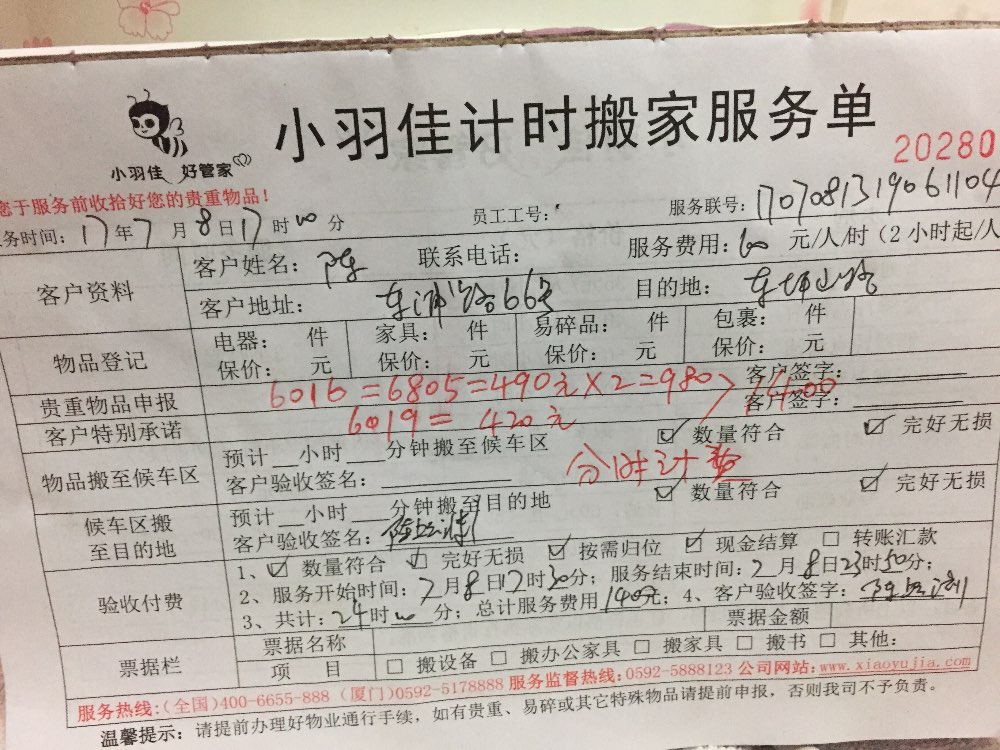 小羽佳计时搬家服务单
小羽佳 好管家
20280
您于服务前收拾好您的贵重物品!
务时间: 17年7月8日17时00分 员工工号: 服务联号: 1707081319061104
客户资料 客户姓名: 陈 联系电话: 服务费用: 60 元/人/时 (2小时起/人
客户地址: 东浦路66号 目的地:
物品登记 电器: 件 家具: 件 易碎品: 件 包裹: 件
保价: 元 保价: 元 保价: 元 保价: 元
贵重物品申报 客户签字:
6016=6805=490元×2=980 1400
客户特别承诺 客户签字:
6019= 420元
物品搬至候车区 预计__小时___分钟搬至候车区 ☑ 数量符合 ☑ 完好无损
客户验收签名: 分时计费
候车区搬至目的地 预计__小时___分钟搬至目的地 ☑ 数量符合 ☑ 完好无损
客户验收签名:
验收付费 1、☑ 数量符合 ☑ 完好无损 ☑ 按需归位 ☑ 现金结算 □ 转账汇款
2、服务开始时间: 7月8日17时30分; 服务结束时间: 7月8日23时50分;
3、共计: 24时00分; 总计服务费用1400元; 4、客户验收签字:
票据栏 票据名称 票据金额
项 目 □ 搬设备 □ 搬办公家具 □ 搬家具 □ 搬书 □ 其他:
服务热线:(全国)400-6655-888 (厦门)0592-5178888 服务监督热线: 0592-5888123 公司网站: www.xiaoyujia.com
温馨提示: 请提前办理好物业通行手续, 如有贵重、易碎或其它特殊物品请提前申报, 否则我司不予负责。